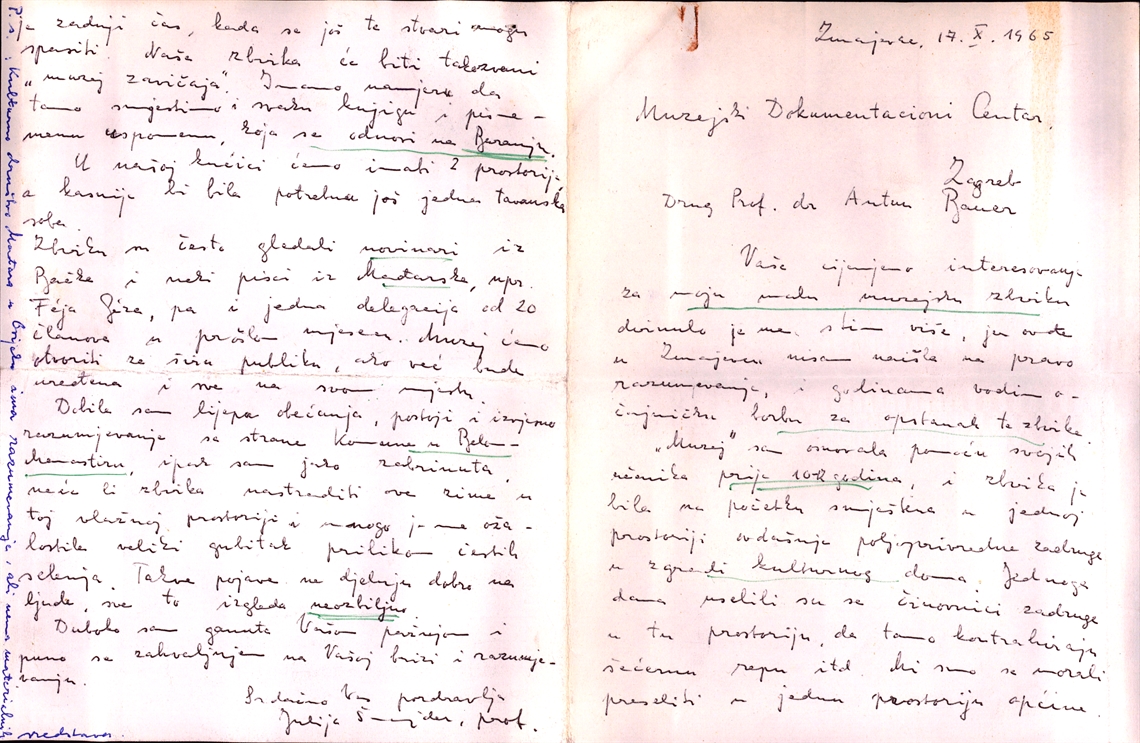 Zmajevac, 17. X. 1965
Muzejski Dokumentacioni Centar,
Zagreb
Drug Prof. dr Antun Bauer
Vaše cijenjeno interesovanje
za moju malu muzejsku zbirku
dirnulo je me stim više, jer ovde
u Zmajevcu nisam naišla na pravo
razumjevanje, i godinama vodim o-
čajničku borbu za opstanak te zbirke.
„Muzej" sam osnovala pomoću svojih
učenika prije 10-12 godina, i zbirka je
bila na početku smještena u jednoj
prostoriji ovdašnje poljoprivredne zadruge
u zgradi kulturnog doma. Jednoga
dana uselili su se činovnici zadruge
u tu prostoriju, da tamo kontrahiraju
šećernu repu itd. Mi smo se morali
preseliti u jednu prostoriju općine.
je zadnji čas, kada se još te stvari mogu
spasiti. Naša zbirka će biti takozvani
„muzej zavičaja". Imamo namjeru da
tamo smjestimo i svaku knjigu i pisme-
menu uspomenu, koja se odnosi na Baranju.
U našoj kućici ćemo imati 2 prostorije,
a kasnije bi bila potrebna još jedna tavanska
soba.
Zbirku su često gledali novinari iz
Bačke i neki pisci iz Mađarske, npr.
Féja Géza, pa i jedna delegacija od 20
članova u prošlom mjesecu. Muzej ćemo
otvoriti za širu publiku, ako već bude
uređena i sve na svom mjestu.
Dobila sam lijepa obećanja, postoji i izvjesno
razumjevanje sa strane Komune u Belom
Manastiru, ipak sam jako zabrinuta,
neće li zbirka nastradati ove zime u
toj vlažnoj prostoriji i mnogo je me oža-
lostila veliki gubitak prilikom čestih
selenja. Takve pojave ne djeluju dobro na
ljude, sve to izgleda neozbiljno.
Duboko sam ganuta Vašom pažnjom i
puno se zahvaljujem na Vašoj brizi i razumje-
vanju.
Srdačno Vas pozdravlja
Julija Šnajder, prof.
P.s. Kulturno društvo Mađara u Osijeku ima razumevanja, ali nema materijalnih
sredstava